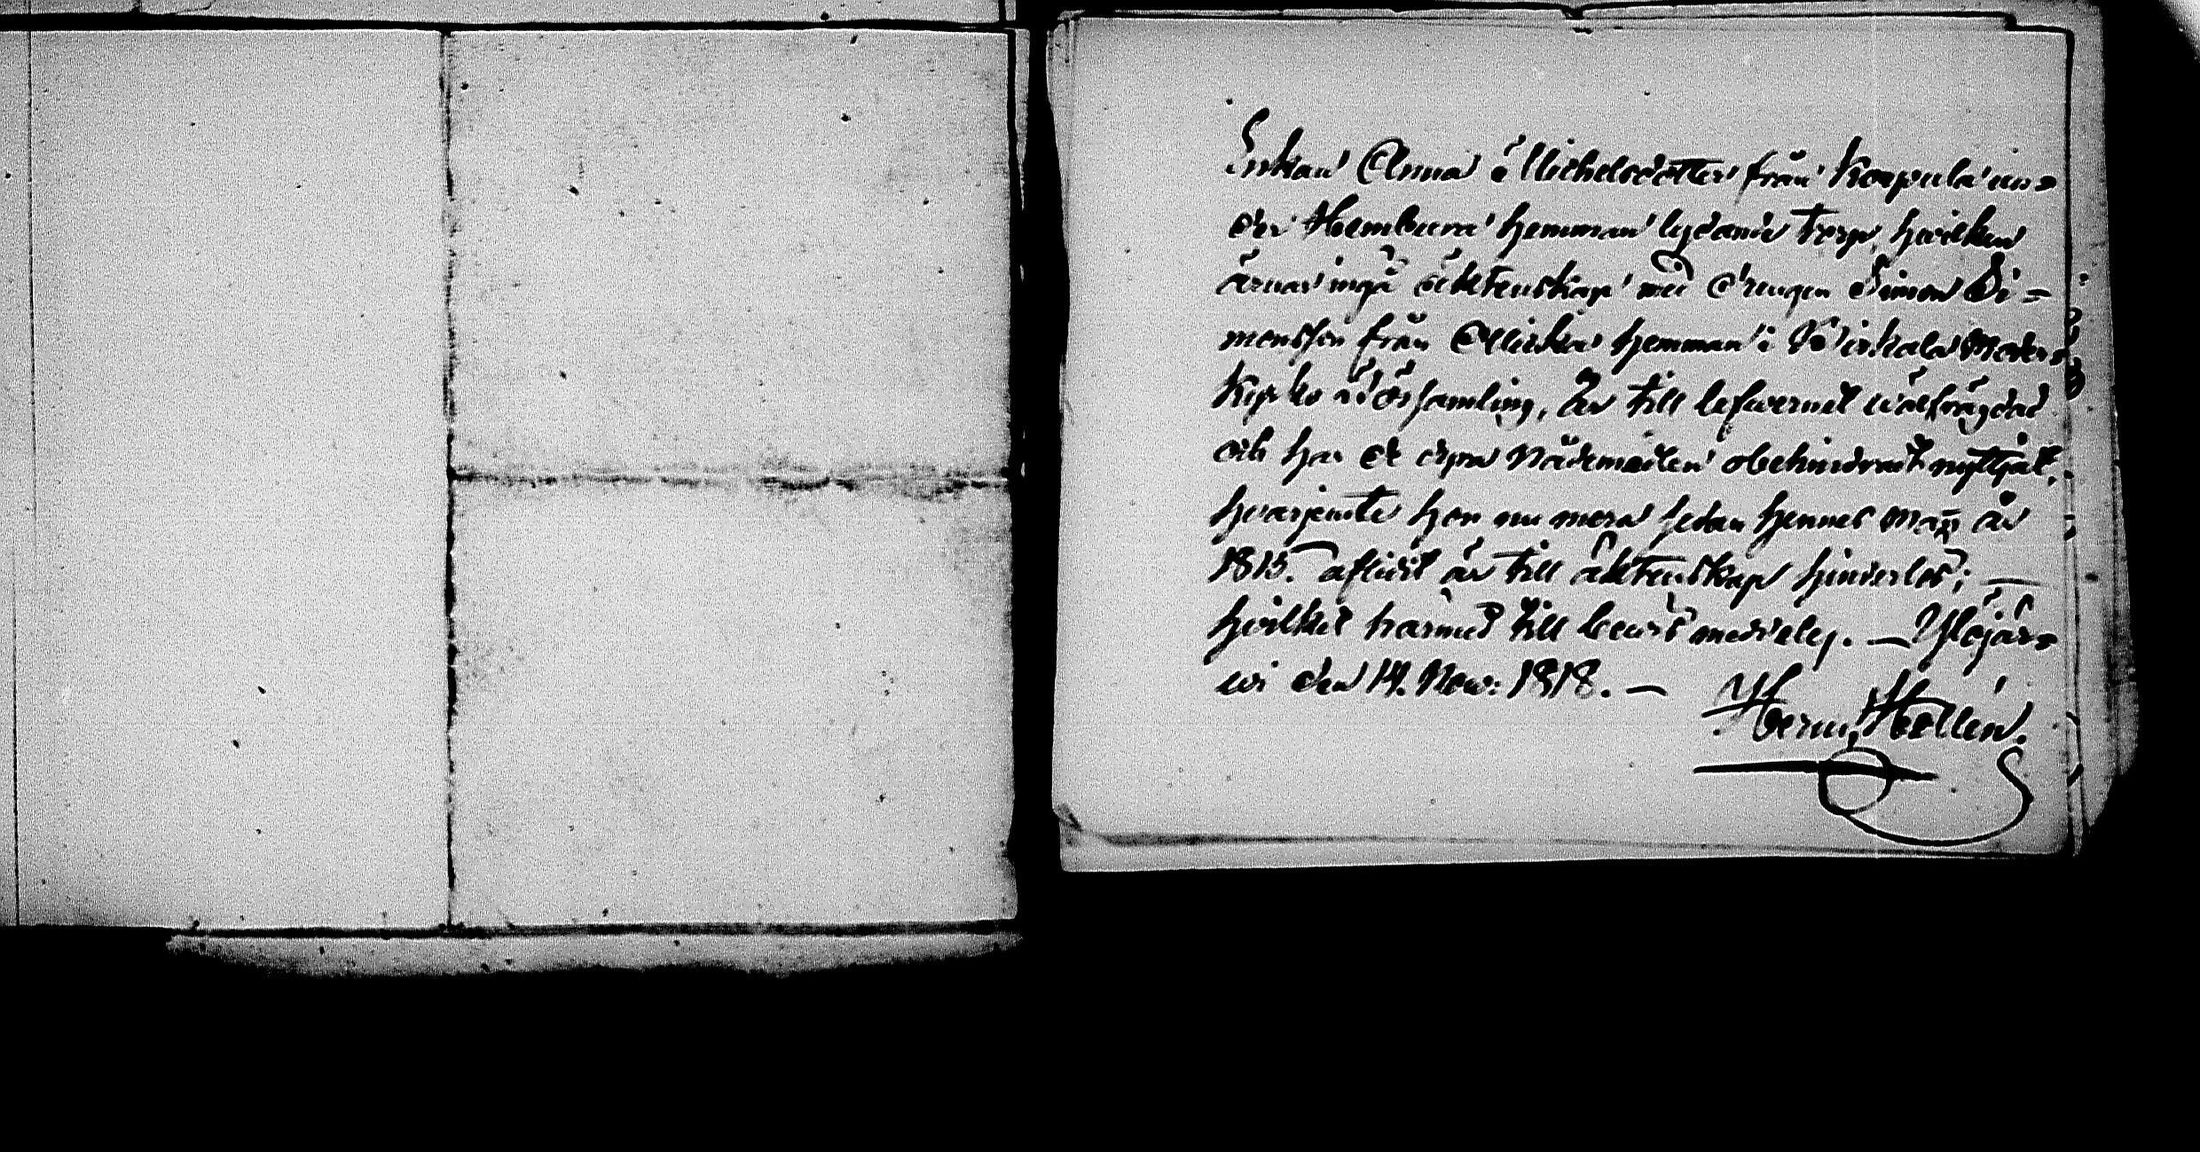 Enkan Anna Michelsdotter från Korpula un=
der Heinivara hemman lydande torp, hvilken
ärnar ingå äktenskap med drengen Simon Si=
monsson från hemman i Birkala Moder
kyrko Församling, Är till lefwernet wälfrägdad
och har de dyra Nådemedlen obehindradt nyttjat,
hvarjemte hon nu mera sedan hennes Man år
1815. aflidit är till äktenskap hinderlös; —
hvilket härmed till bewis meddelas. — Ylöjär=
wi den 14. Nov: 1818. —
Herm. Hellén.